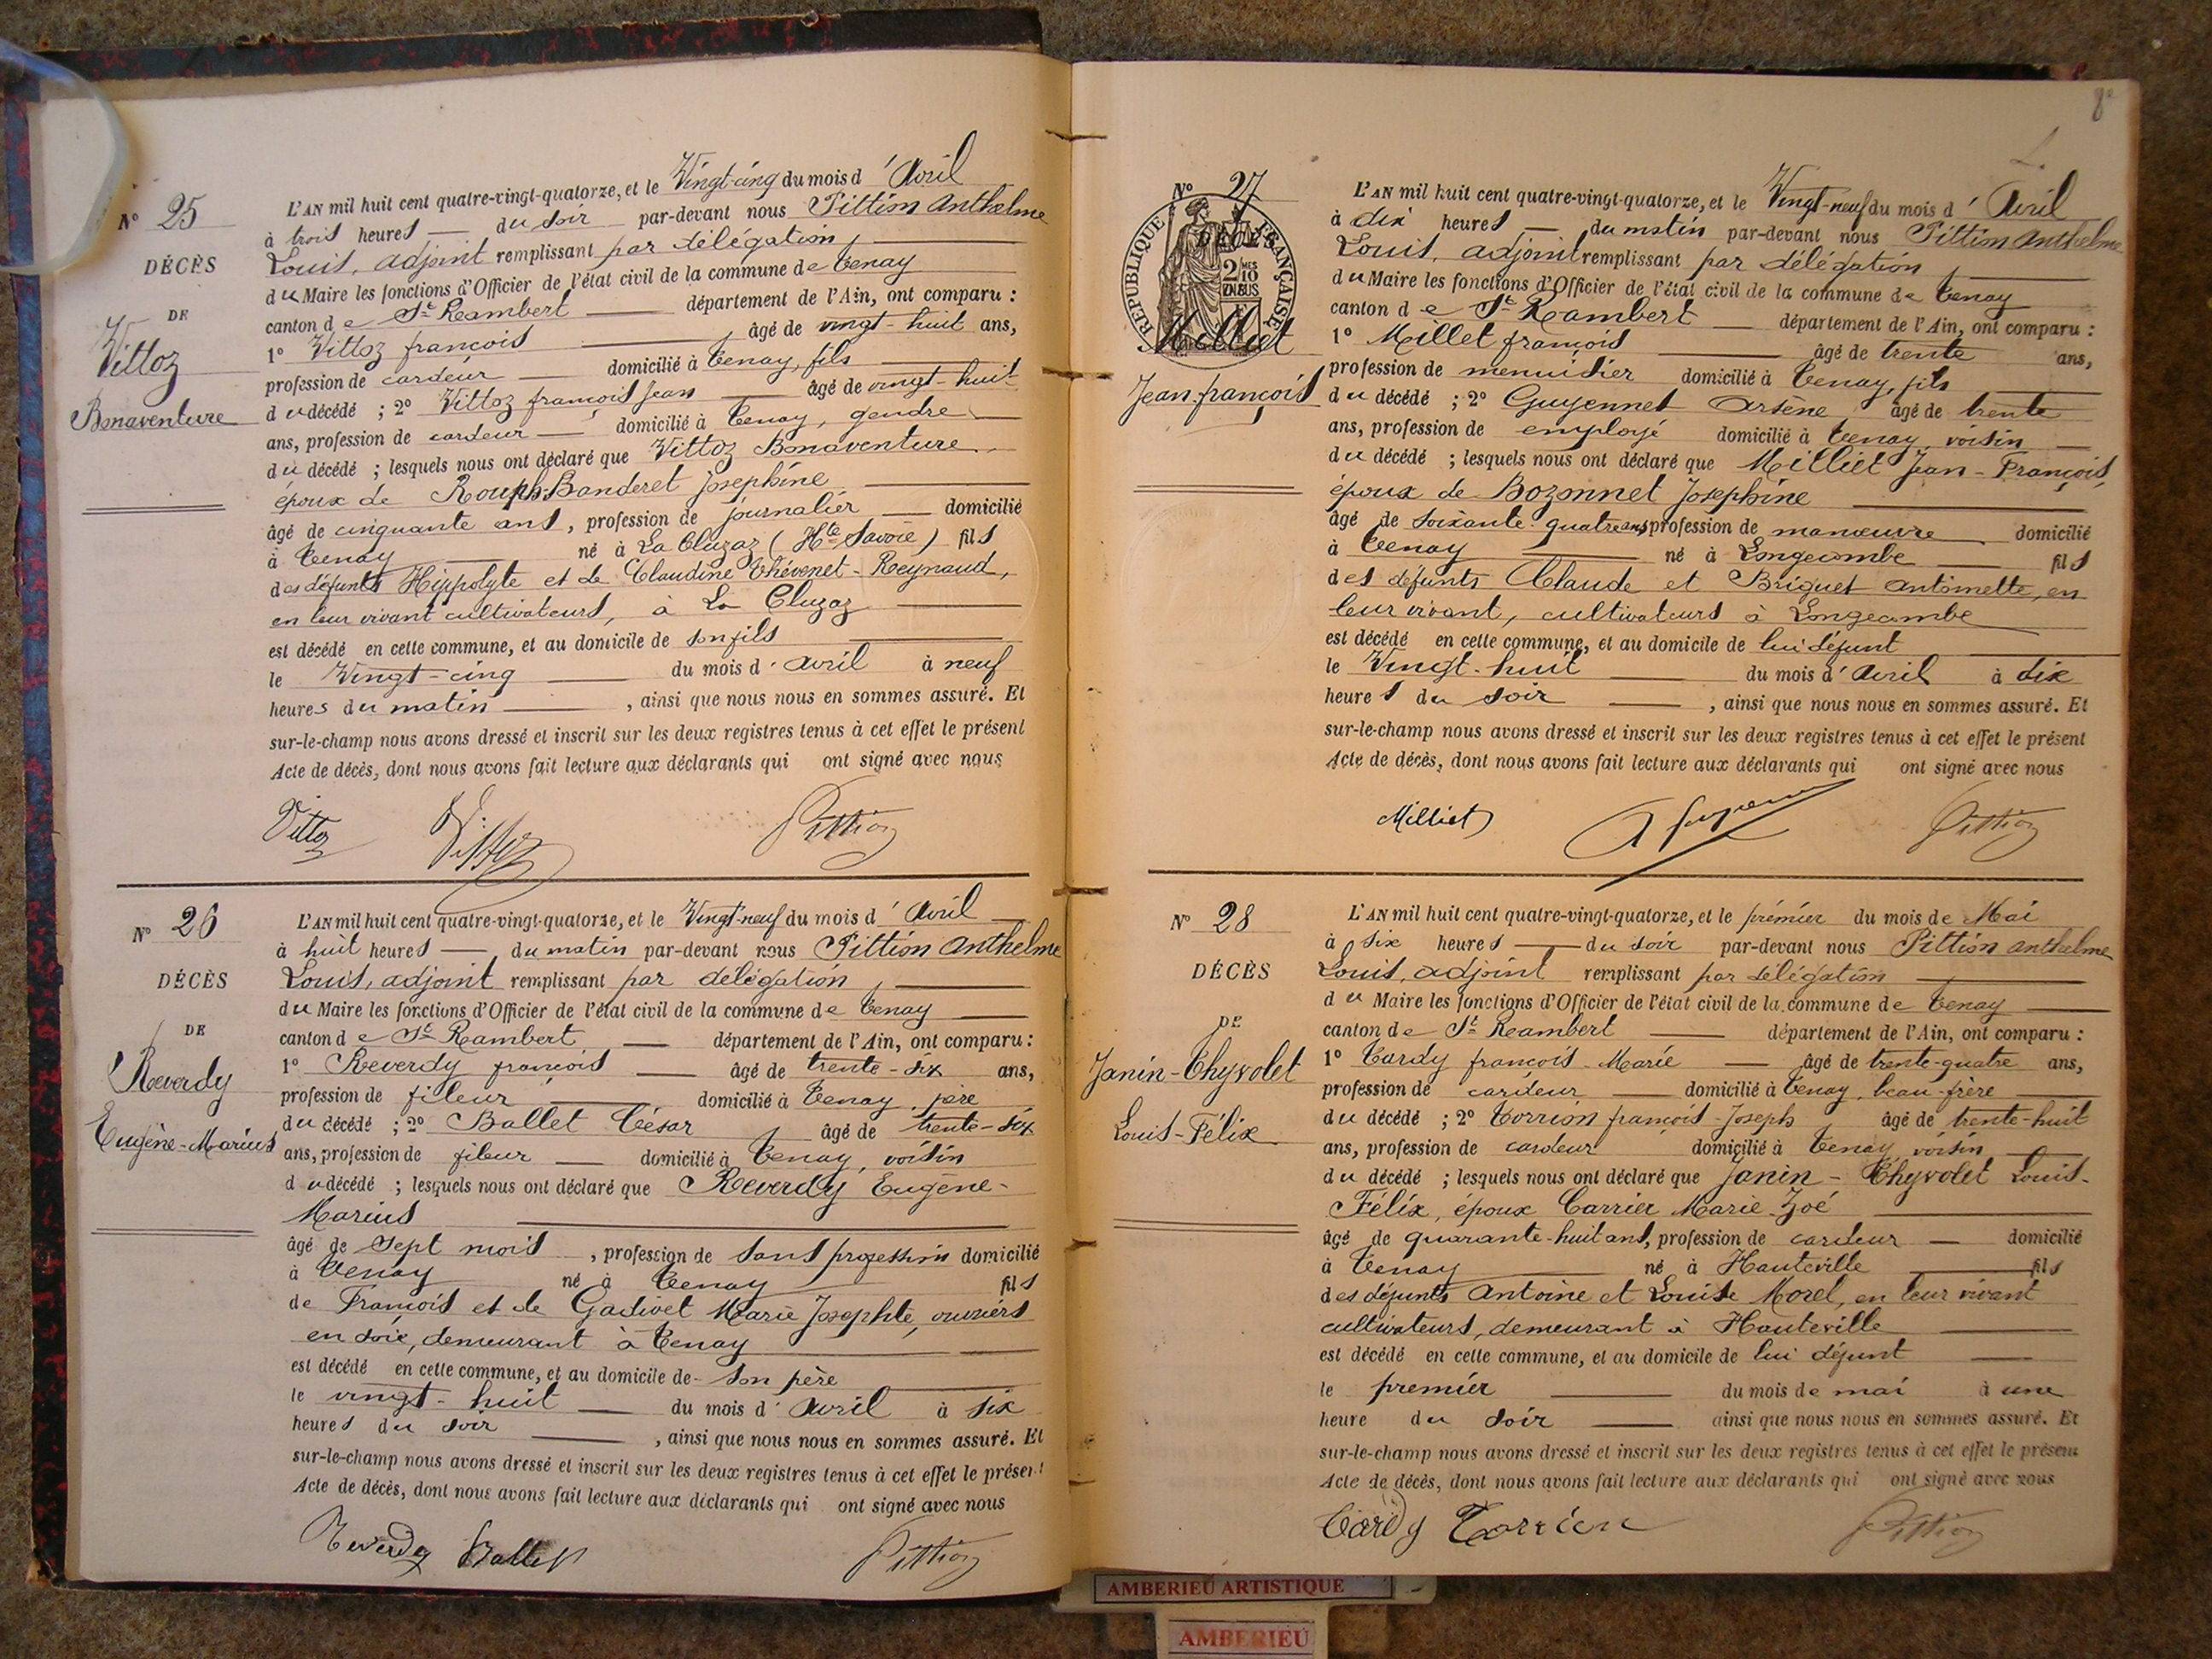 N° 25
DÉCÈS
DE
Vittoz
Bonaventure
L'AN mil huit cent quatre-vingt-quatorze, et le Vingt-cinq du mois d'Avril
à trois heures du soir par-devant nous Pittion Anthelme
Louis, adjoint remplissant par délégation,
du Maire les fonctions d'Officier de l'état civil de la commune de Tenay
canton de St Rambert département de l'Ain, ont comparu :
1° Vittoz françois, âgé de vingt-huit ans,
profession de cardeur domicilié à Tenay, fils
du décédé ; 2° Vittoz françois Jean âgé de vingt-huit
ans, profession de cardeur domicilié à Tenay, gendre
du décédé ; lesquels nous ont déclaré que Vittoz Bonaventure,
époux de Rouph-Banderet Josephine
âgé de cinquante ans, profession de journalier domicilié
à Tenay né à La Cluzaz (Hte Savoie) fils
des défunts Hippolyte et de Claudine Thévenet-Reynaud,
en leur vivant cultivateurs, à La Cluzaz
est décédé en cette commune, et au domicile de son fils
le Vingt-cinq du mois d'avril à neuf
heures du matin, ainsi que nous nous en sommes assuré. Et
sur-le-champ nous avons dressé et inscrit sur les deux registres tenus à cet effet le présent
Acte de décès, dont nous avons fait lecture aux déclarants qui ont signé avec nous
Vittoz Vittoz Pittion
N° 26
DÉCÈS
DE
Reverdy
Eugène-Marius
L'AN mil huit cent quatre-vingt-quatorze, et le Vingt-neuf du mois d'Avril
à huit heures du matin par-devant nous Pittion Anthelme
Louis, adjoint remplissant par délégation,
du Maire les fonctions d'Officier de l'état civil de la commune de Tenay
canton de St Rambert département de l'Ain, ont comparu :
1° Reverdy françois âgé de trente-six ans,
profession de fileur domicilié à Tenay, père
du décédé ; 2° Ballet César, âgé de trente-six
ans, profession de fileur domicilié à Tenay, voisin
du décédé ; lesquels nous ont déclaré que Reverdy Eugène-
Marius
âgé de sept mois, profession de sans profession domicilié
à Tenay né à Tenay fils
de François et de Gadivet Marie Josephte, ouvriers
en soie, demeurant à Tenay
est décédé en cette commune, et au domicile de son père
le vingt-huit du mois d'Avril à six
heures du soir, ainsi que nous nous en sommes assuré. Et
sur-le-champ nous avons dressé et inscrit sur les deux registres tenus à cet effet le présent
Acte de décès, dont nous avons fait lecture aux déclarants qui ont signé avec nous
Reverdy Ballet Pittion
8e
N° 27
RÉPUBLIQUE FRANÇAISE
DÉCÈS
2/10 MES EN SUS
Milliet
Jean-françois
L'AN mil huit cent quatre-vingt-quatorze, et le Vingt-neuf du mois d'Avril
à dix heures du matin par-devant nous Pittion Anthelme
Louis, adjoint remplissant par délégation,
du Maire les fonctions d'Officier de l'état civil de la commune de Tenay
canton de St Rambert département de l'Ain, ont comparu :
1° Millet françois âgé de trente ans,
profession de menuisier domicilié à Tenay, fils
du décédé ; 2° Guyennet Arsène, âgé de trente
ans, profession de employé domicilié à Tenay, voisin
du décédé ; lesquels nous ont déclaré que Milliet Jean-François,
époux de Bozonnet Josephine
âgé de soixante-quatre ans, profession de manœuvre domicilié
à Tenay né à Longecombe fils
des défunts Claude et Briguet Antoinette, en
leur vivant, cultivateurs à Longecombe
est décédé en cette commune, et au domicile de lui défunt
le Vingt-huit du mois d'Avril à dix
heures du soir, ainsi que nous nous en sommes assuré. Et
sur-le-champ nous avons dressé et inscrit sur les deux registres tenus à cet effet le présent
Acte de décès, dont nous avons fait lecture aux déclarants qui ont signé avec nous
Milliet Pittion
N° 28
DÉCÈS
DE
Janin-Thyvolet
Louis-Félix
L'AN mil huit cent quatre-vingt-quatorze, et le premier du mois de Mai
à six heures du soir par-devant nous Pittion Anthelme
Louis, adjoint remplissant par délégation
du Maire les fonctions d'Officier de l'état civil de la commune de Tenay
canton de St Rambert département de l'Ain, ont comparu :
1° Tardy françois-Marie âgé de trente-quatre ans,
profession de cardeur domicilié à Tenay, beau-frère
du décédé ; 2° Torrion françois-Joseph âgé de trente-huit
ans, profession de cardeur domicilié à Tenay, voisin
du décédé ; lesquels nous ont déclaré que Janin-Thyvolet Louis-
Félix, époux Carrier Marie-Zoé
âgé de quarante-huit ans, profession de cardeur domicilié
à Tenay né à Hauteville fils
des défunts Antoine et Louise Morel, en leur vivant
cultivateurs, demeurant à Hauteville
est décédé en cette commune, et au domicile de lui défunt
le premier du mois de mai à une
heure du soir ainsi que nous nous en sommes assuré. Et
sur-le-champ nous avons dressé et inscrit sur les deux registres tenus à cet effet le présent
Acte de décès, dont nous avons fait lecture aux déclarants qui ont signé avec nous
Tardy Torrion Pittion
AMBERIEU ARTISTIQUE
AMBERIEU